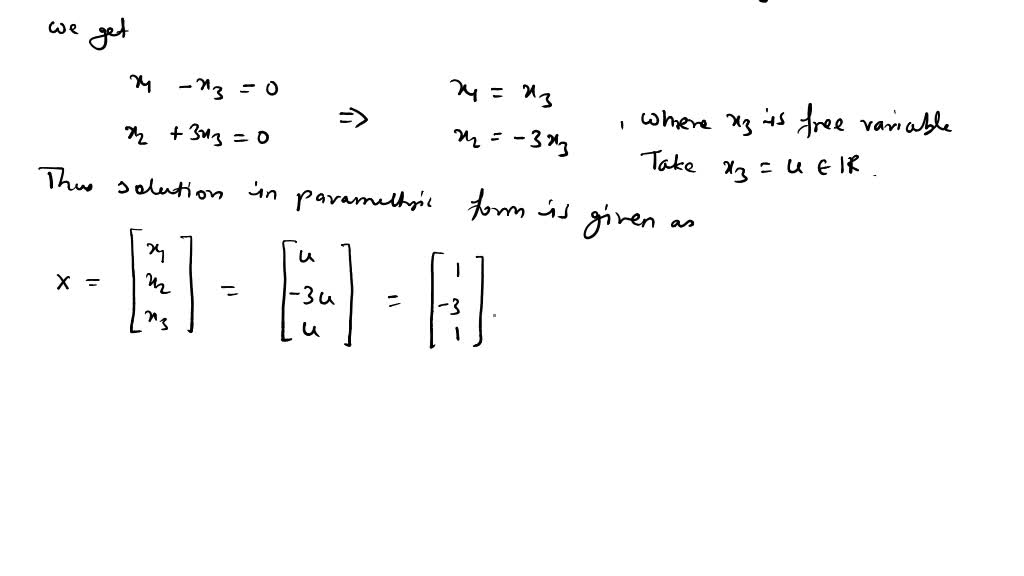 we get
x₁ - x₃ = 0 ⇒ x₁ = x₃
x₂ + 3x₃ = 0 x₂ = -3x₃ , where x₃ is free variable
Take x₃ = u ∈ ℝ.
Thus solution in parametric form is given as
x = [x₁ x₂ x₃] = [u -3u u] = [1 -3 1].